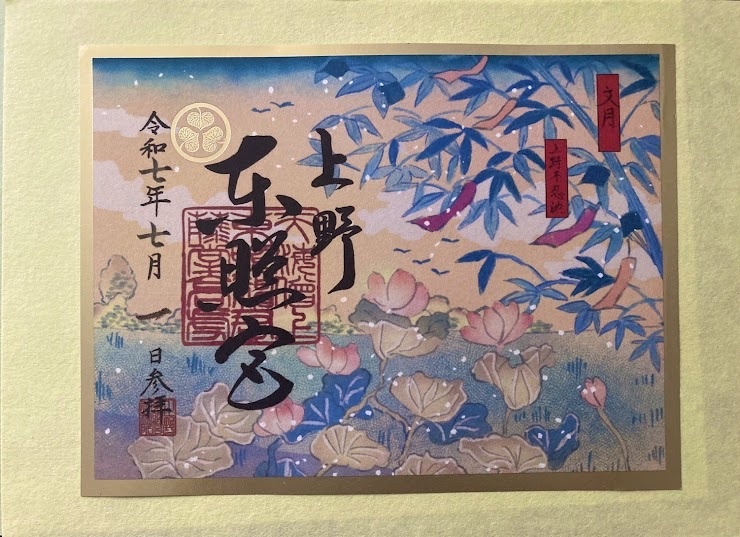 文月
上野不忍池
上野
東照宮
令和七年七月一日参拝